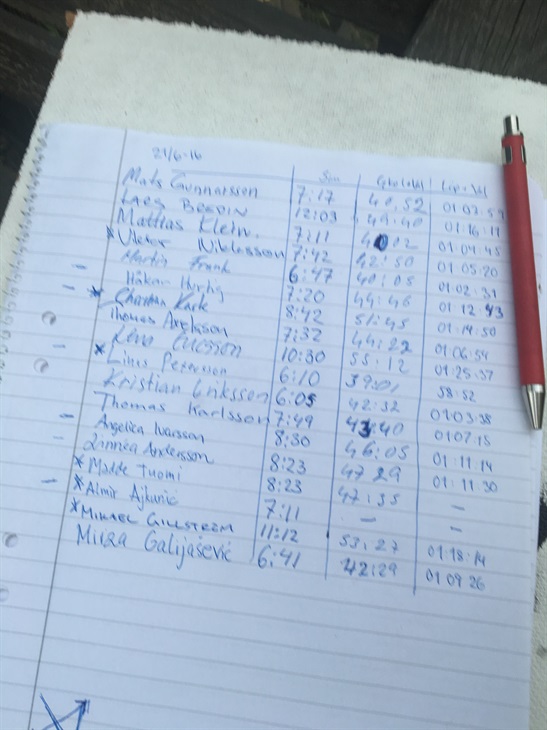 21/6-16
Sim Cykel+Vxl Löp+Vxl
Mats Gunnarsson 7:17 40:52 01:07:57
Lars Bosdin 12:03 49:40 01:16:11
Mattias Klein 7:11 4002 01:04:45
* Viktor Niklasson 7:42 42:50 01:05:20
Martin Frank 6:47 40:05 01:02:31
- Håkan Hurtig 7:20 44:46 01:12:43
- * Kark 8:42 51:45 01:14:50
Thomas Axelsson 7:32 44:22 01:06:54
Ericsson 10:30 55:12 01:25:37
- * Linus Petersson 6:10 39:01 58:52
Kristian Eriksson 6:05 42:32 01:03:38
Thomas Karlsson 7:49 43:40 01:07:15
- Angelica Ivarsson 8:30 46:05 01:11:14
- Linnéa Andersson 8:23 47:29 01:11:30
* Madde Tuomi 8:23 47:35 -
- * Almir Ajkunic 7:11 - -
* Mikael Gillström 11:12 53:27 01:18:14
Mirza Galijašević 6:41 42:29 01:09:26